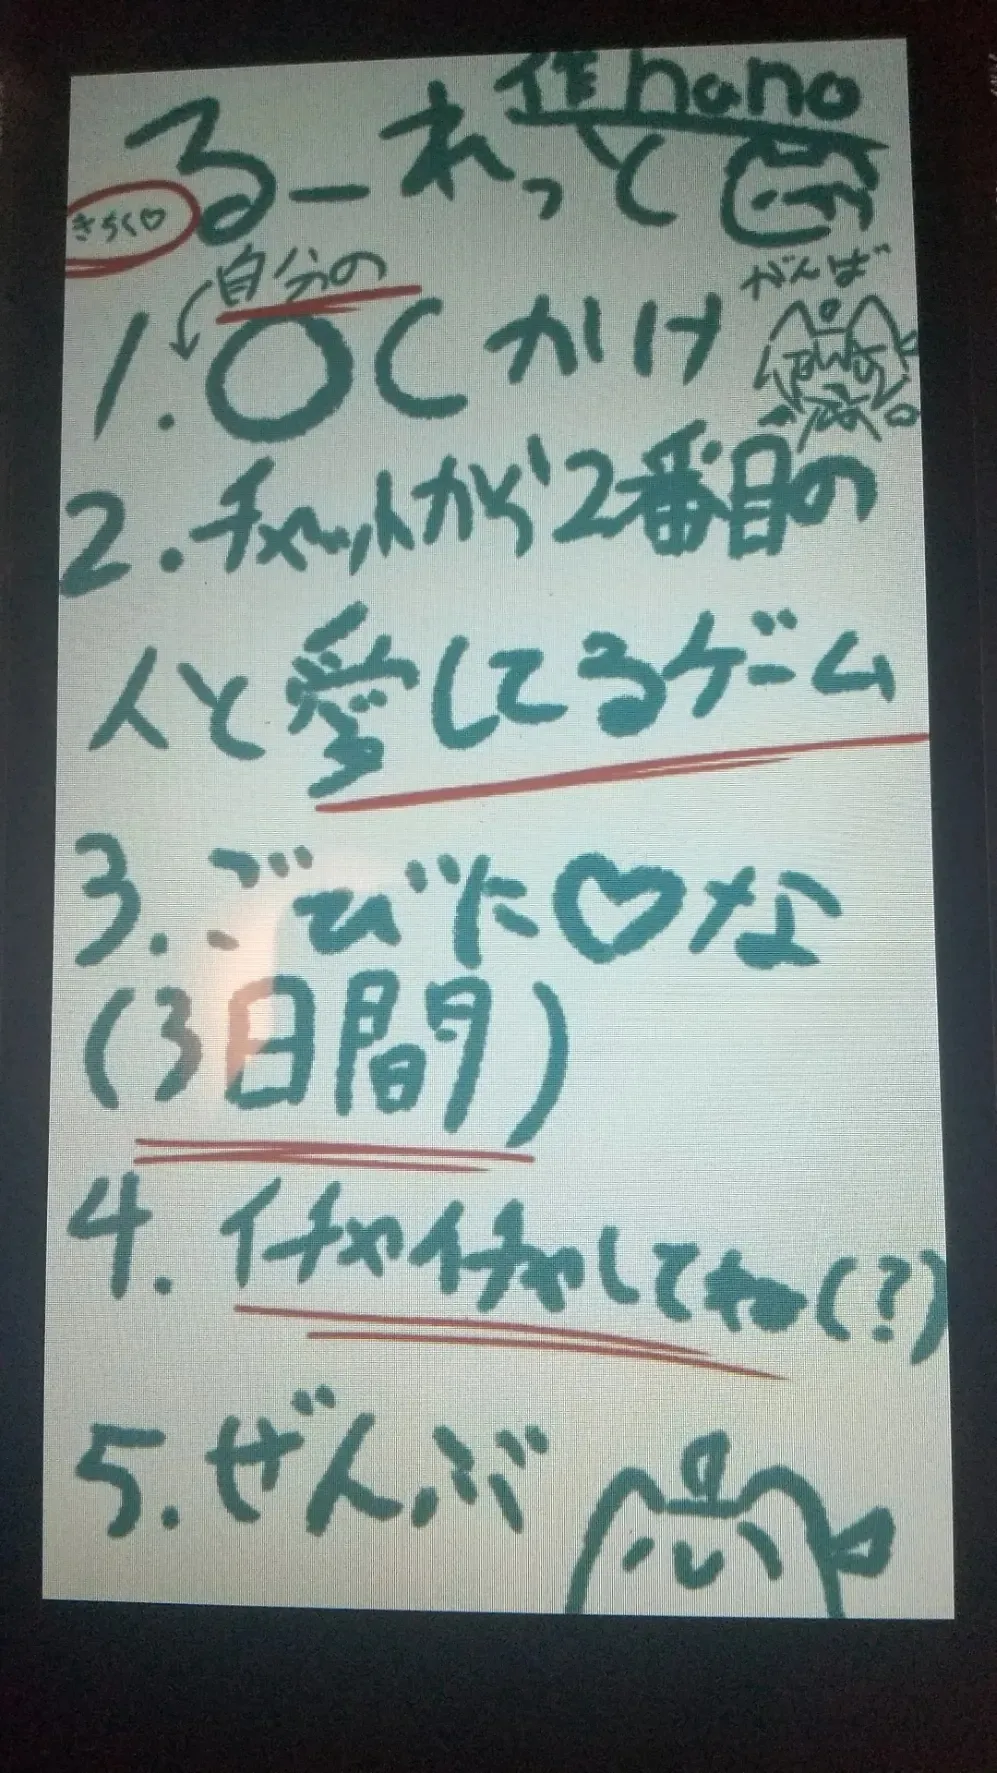 作 nano
るーれっと
きちく♡
自分の
1.〇Cかけ
がんば
2.チャットから2番目の
人と愛してるゲーム
3.ごびに♡な
(3日間)
4.イチャイチャしてね(?)
5.ぜんぶ